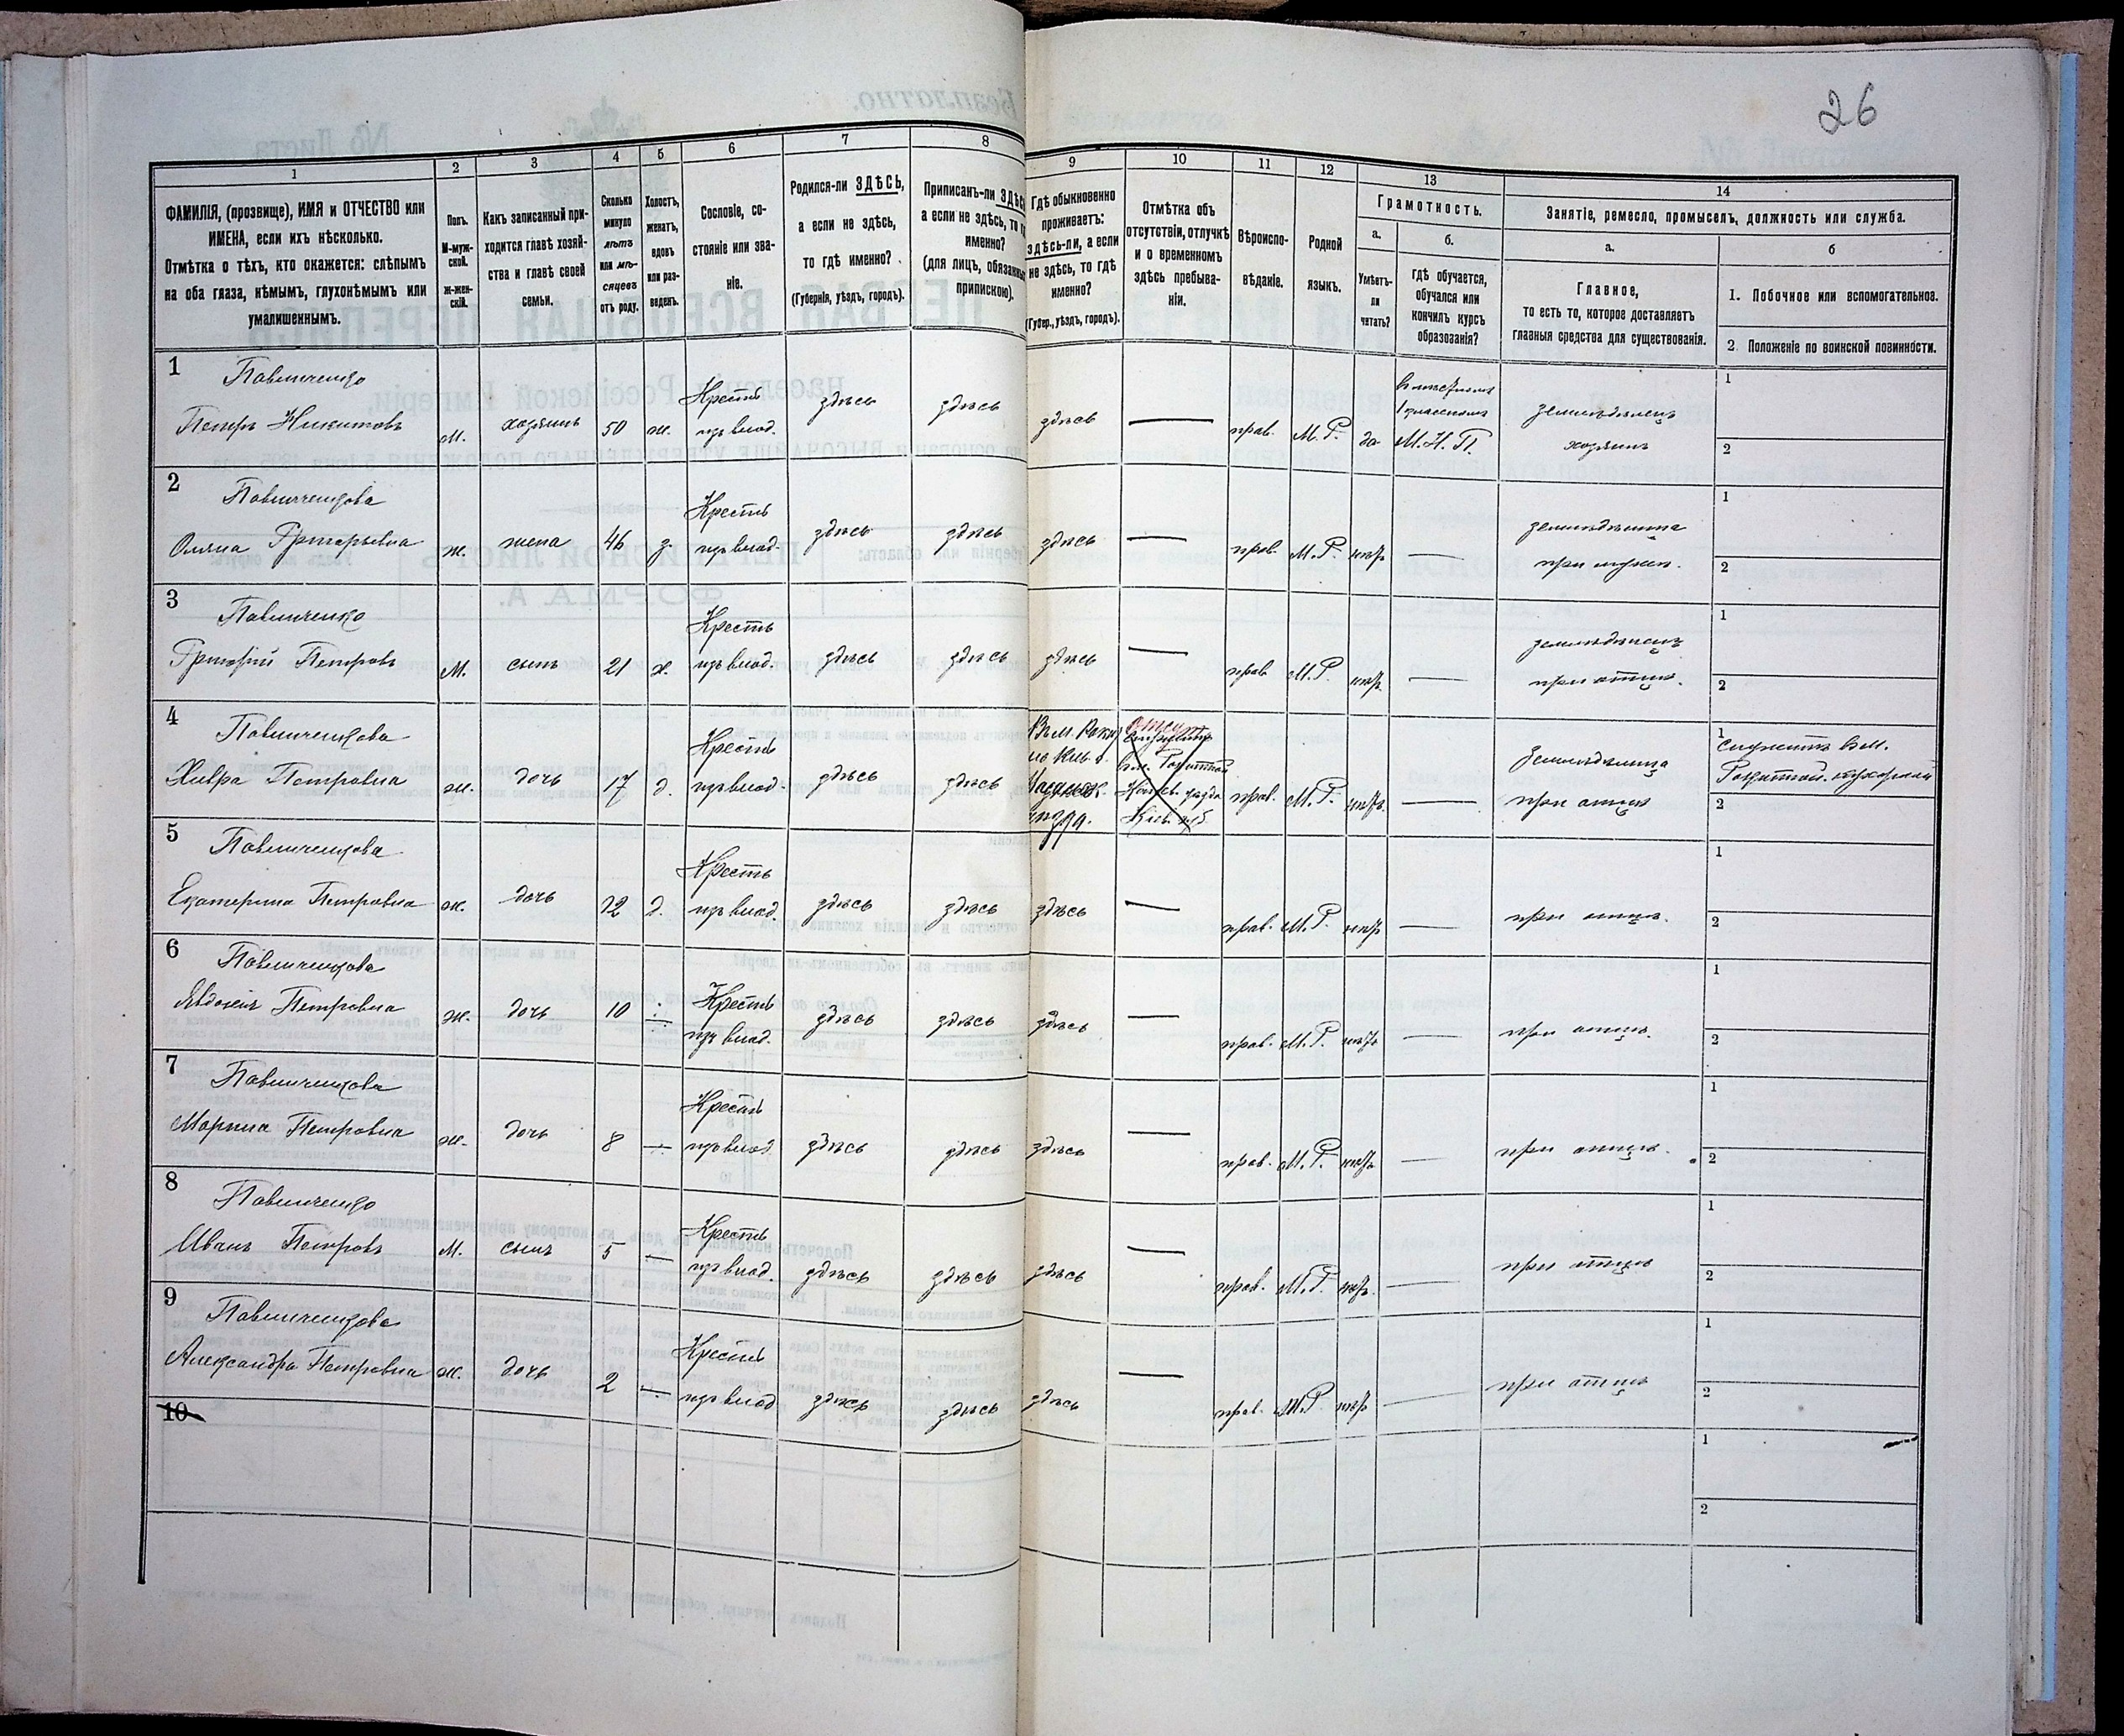 26
1
2
3
4
5
6
7
8
9
10
11
12
13
14
ФАМИЛІЯ, (прозвище), ИМЯ и ОТЧЕСТВО или
ИМЕНА, если ихъ нѣсколько.
Отмѣтка о тѣхъ, кто окажется: слѣпымъ
на оба глаза, нѣмымъ, глухонѣмымъ или
умалишеннымъ.
Полъ.
М-муж-
ской.
Ж-жен-
скій.
Какъ записанный при-
ходится главѣ хозяй-
ства и главѣ своей
семьи.
Сколько
минуло
лѣтъ
или мѣ-
сяцевъ
отъ роду.
Холостъ,
женатъ,
вдовъ
или раз-
веденъ.
Сословіе, со-
стояніе или зва-
ніе.
Родился-ли ЗДѢСЬ,
а если не здѣсь,
то гдѣ именно?
(Губернія, уѣздъ, городъ).
Приписанъ-ли
а если не здѣсь, то
именно?
(для лицъ,
припискою).
Гдѣ обыкновенно
проживаетъ:
здѣсь-ли, а если
не здѣсь, то гдѣ
именно?
(Губер., уѣздъ, городъ).
Отмѣтка объ
отсутствіи, отлучкѣ
и о временномъ
здѣсь пребыва-
ніи.
Вѣроиспо-
вѣданіе.
Родной
языкъ.
Грамотность.
а.
Умѣетъ-
ли
читать?
б.
гдѣ обучается,
обучался или
кончилъ курсъ
образованія?
Занятіе, ремесло, промыселъ, должность или служба.
а.
Главное,
то есть то, которое доставляетъ
главныя средства для существованія.
б
1. Побочное или вспомогательное.
2. Положеніе по воинской повинности.
1 Павличенко
Петръ Никитовъ м. хозяинъ 50 ж. Крестн изъ влад. здѣсь здѣсь здѣсь — прав. М.Р. да М.Н.П. земледѣлецъ хозяинъ 1 2
2 Павличенкова
Олэна Григорьевна ж. жена 46 з. Крестн изъ влад. здѣсь здѣсь здѣсь — прав. М.Р. нѣтъ — земледѣлица при мужѣ. 1 2
3 Павличенко
Григорій Петровъ М. сынъ 21 х. Крестн изъ влад. здѣсь здѣсь здѣсь — прав М.Р. нѣтъ. — земледѣлецъ при отцѣ. 1 2
4 Павличенкова
Хивра Петровна ж. дочь 17 д. Крестн изъ влад. здѣсь здѣсь уѣзда. прав. М.Р. нѣтъ. — Земледѣлица при отцѣ 1 служитъ въ м. 2
5 Павличенкова
Екатерина Петровна ж. дочь 12 д. Крестн изъ влад. здѣсь здѣсь здѣсь — прав. М.Р. нѣтъ — при отцѣ. 1 2
6 Павличенкова
Явдокія Петровна ж. дочь 10 — Крестн изъ влад. здѣсь здѣсь здѣсь — прав. М.Р. нѣтъ — при отцѣ. 1 2
7 Павличенкова
Марина Петровна ж. дочь 8 — Крестн изъ влад. здѣсь здѣсь здѣсь — прав. М.Р. нѣтъ — при отцѣ. 1 2
8 Павличенко
Иванъ Петровъ М. сынъ 5 — Крестн изъ влад. здѣсь здѣсь здѣсь — прав. М.Р. нѣтъ. — при отцѣ 1 2
9 Павличенкова
Александра Петровна ж. дочь 2 — Крестн изъ влад здѣсь здѣсь здѣсь — прав. М.Р. нѣтъ — при отцѣ 1 2
10 1 2